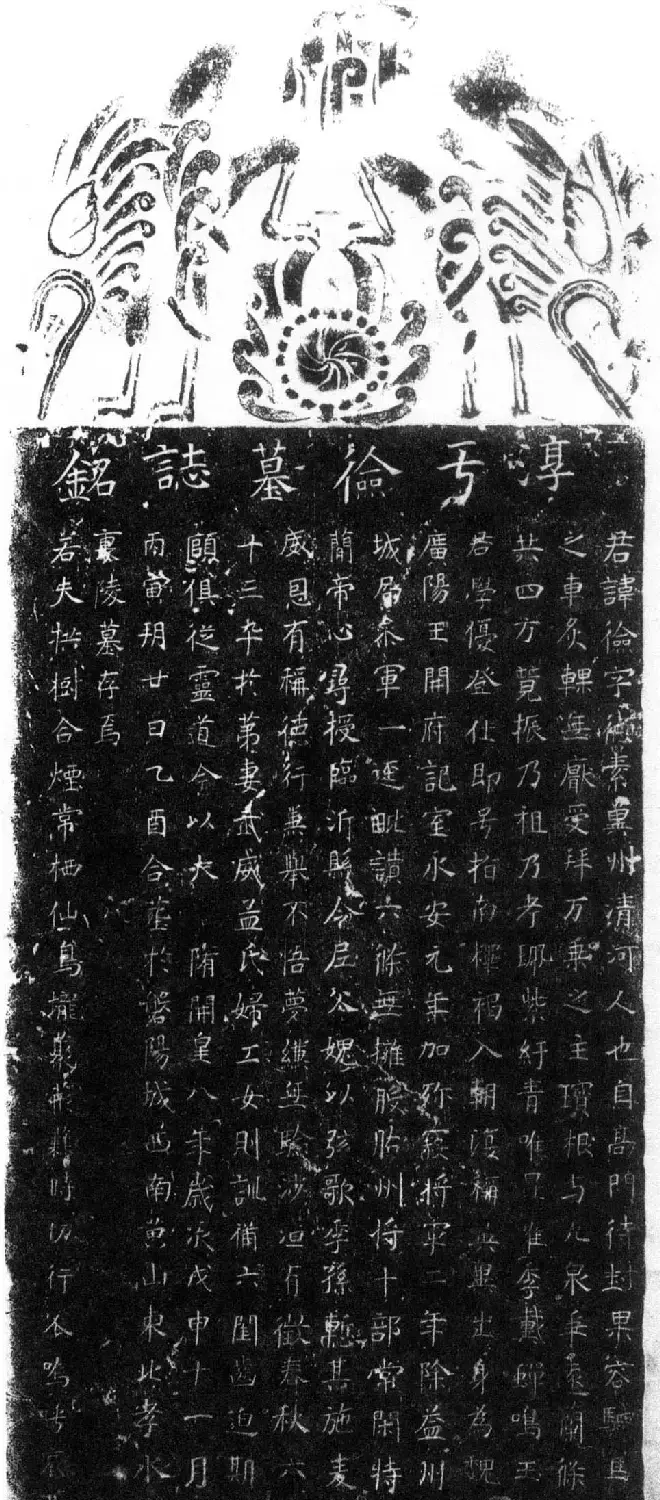 淳于儉墓誌銘
君諱儉字德素冀州清河人也自高門待封果容駟馬
之車炙輠無厭受拜万乘之主瓊根与九泉垂遠蘭條
共四方竟振乃祖乃考 紫紆青唯 唯季戴 鳴玉
君學優登仕即号指南釋褐入朝復稱 出身為魏
廣陽王開府記室永安元年加殄寇將軍二年除益州
城局叅軍一逕毗讚六條無擁股肱州將十部常閑特
簡帝心尋授臨沂縣令屈 媿以弦歌季孫慙其施麦
威恩有稱德行兼舉不悟夢 無驗涉洹有徵春秋六
十三卒於第妻武威孟氏婦工女則訓備六閨齒迫期
頤俱從靈道今以大 隋開皇八年歲次戊申十一月
丙寅朔廿日乙酉合塟於磐陽城西南黌山東北孝水
裏陵墓存焉
若夫拱樹合煙常栖仙鳥壠 時切行 嗚呼